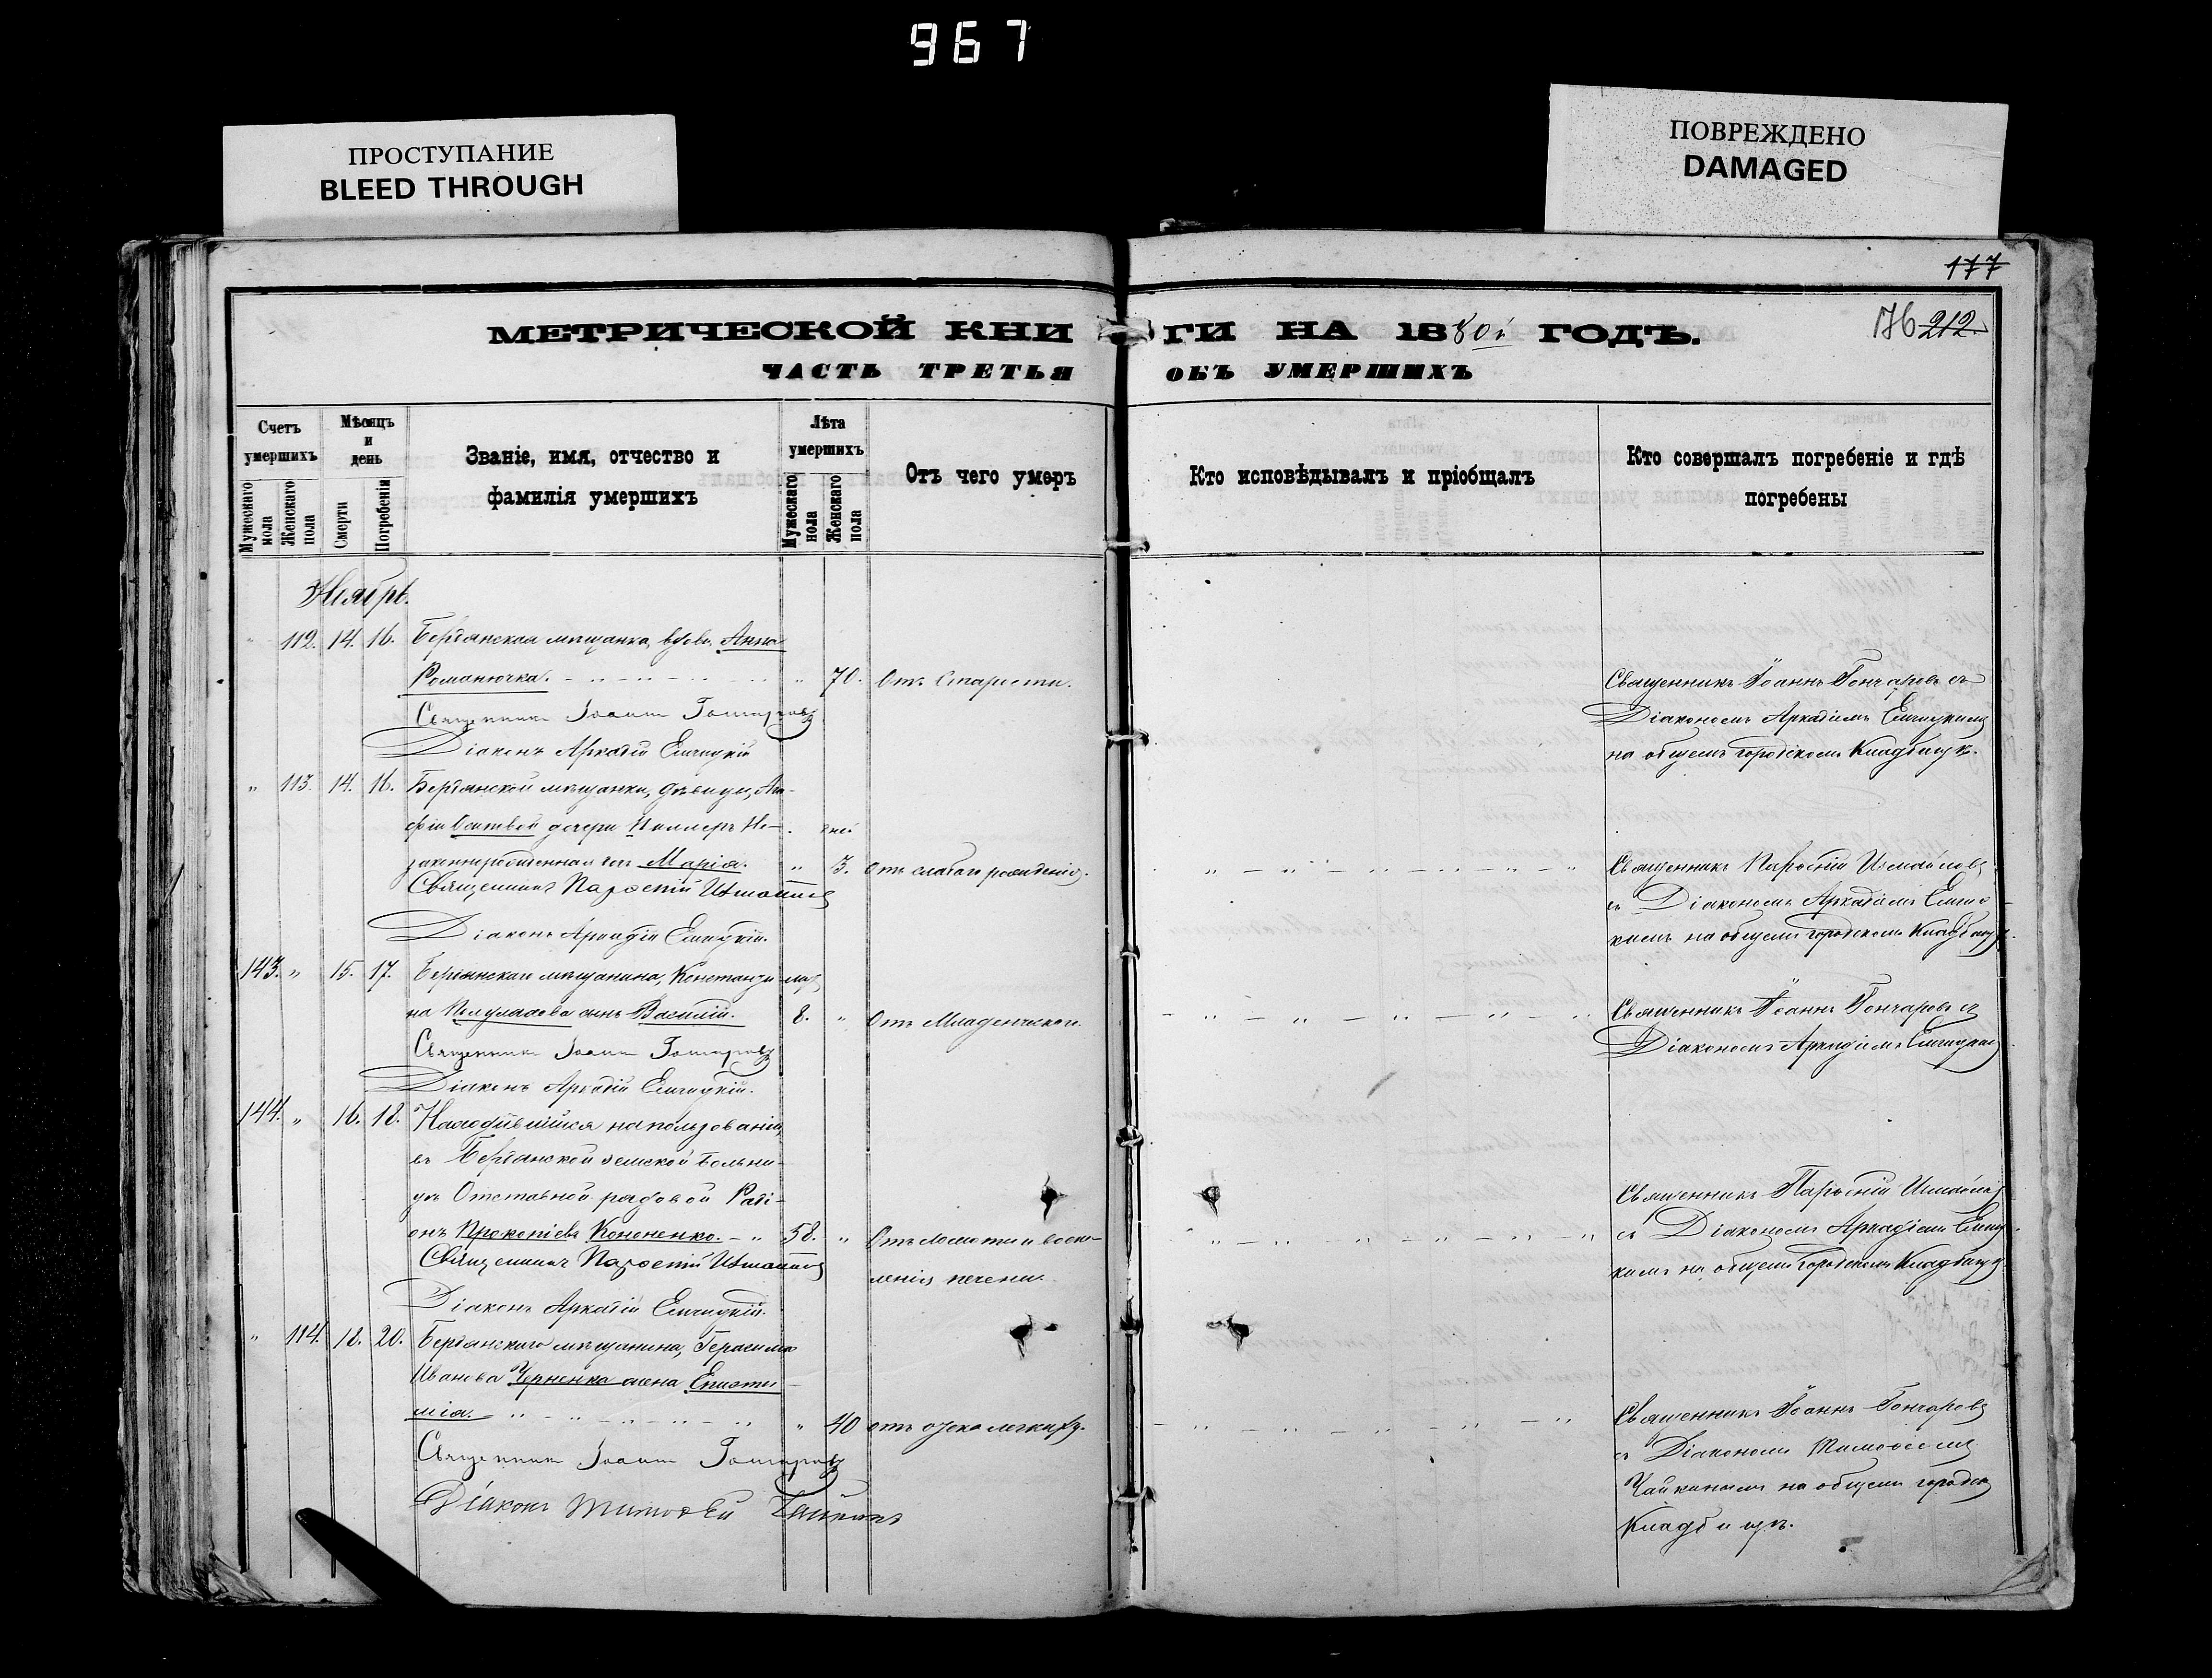 967
ПРОСТУПАНИЕ
BLEED THROUGH
ПОВРЕЖДЕНО
DAMAGED
177
МЕТРИЧЕСКОЙ КНИ ГИ НА 1880й ГОДЪ.
176 212
ЧАСТЬ ТРЕТЬЯ ОБЪ УМЕРШИХЪ
Счетъ умершихъ
Мужескаго пола
Женскаго пола
Мѣсяцъ и день
Смерти
Погребенія
Званіе, имя, отчество и фамилія умершихъ
Лѣта умершихъ
Мужескаго пола
Женскаго пола
Отъ чего умеръ
Кто исповѣдывалъ и пріобщалъ
Кто совершалъ погребеніе и гдѣ погребены
Ноябрь.
" 112. 14. 16. Бердянская мѣщанка, вдова Анна
Романючка. " 70. Отъ старости. Священникъ Іоаннъ Гончаровъ съ
Священникъ Іоаннъ Гончаровъ Діакономъ Аркадіемъ
Діаконъ Аркадій на общемъ городскомъ Кладбищѣ.
" 113. 14. 16. Бердянской мѣщанки, дѣвицы, Ага-
фіи дочери не- дней
законнорожденная дочь Марія. " 3. Отъ слабаго рожденія. Священникъ Парѳеній Измайловъ
Священникъ Парѳеній Измайловъ съ Діакономъ Аркадіемъ
Діаконъ Аркадій кимъ на общемъ городскомъ Кладбищѣ.
143. " 15. 17. Бердянскаго мѣщанина, Константи-
на сынъ Василій. 8. " Отъ Младенческой. Священникъ Іоаннъ Гончаровъ съ
Священникъ Іоаннъ Гончаровъ Діакономъ Аркадіемъ
Діаконъ Аркадій
144. " 16. 18. Находившійся на пользованіи,
въ Бердянской земской больни-
цѣ Отставной рядовой Раді-
онъ Прокопіевъ Кононенко. 58. " Отъ и воспа- Священникъ Парѳеній Измайловъ
Священникъ Парѳеній Измайловъ ленія печени. съ Діакономъ Аркадіемъ
Діаконъ Аркадій кимъ на общемъ городскомъ Кладбищѣ.
" 114. 18. 20. Бердянскаго мѣщанина, Герасима
Иванова Черненка жена
мія. " 40 отъ отека легкихъ. Священникъ Іоаннъ Гончаровъ
Священникъ Іоаннъ Гончаровъ съ Діакономъ Тимоѳеемъ
Діаконъ Тимоѳей Чайкинъ Чайкинымъ на общемъ городск.
Кладбищѣ.